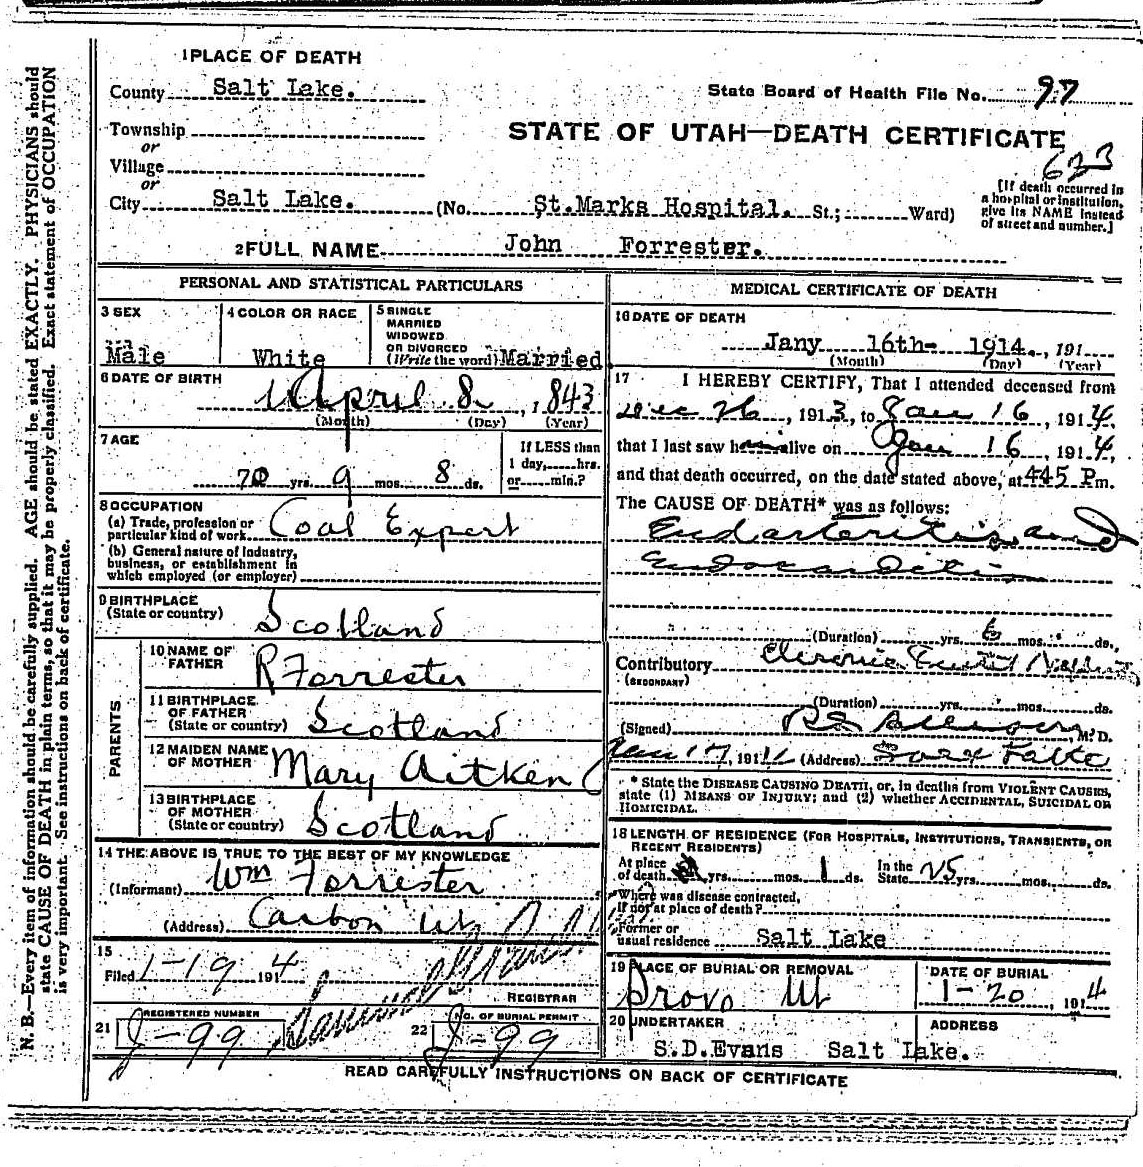 1 PLACE OF DEATH
County Salt Lake.
State Board of Health File No. 97
Township
or
Village
or
City Salt Lake. (No. St.Marks Hospital. St.; Ward)
STATE OF UTAH—DEATH CERTIFICATE
623
[If death occurred in
a hospital or institution,
give its NAME instead
of street and number.]
2 FULL NAME John Forrester.
PERSONAL AND STATISTICAL PARTICULARS
3 SEX
Male
4 COLOR OR RACE
White
5 SINGLE
MARRIED
WIDOWED
OR DIVORCED
(Write the word) Married
6 DATE OF BIRTH
April 8, 1843
(Month) (Day) (Year)
7 AGE
70 yrs. 9 mos. 8 ds.
If LESS than
1 day, hrs.
or min.?
8 OCCUPATION
(a) Trade, profession or
particular kind of work Coal Expert
(b) General nature of Industry,
business, or establishment in
which employed (or employer)
9 BIRTHPLACE
(State or country) Scotland
PARENTS
10 NAME OF
FATHER R Forrester
11 BIRTHPLACE
OF FATHER
(State or country) Scotland
12 MAIDEN NAME
OF MOTHER Mary Aitken
13 BIRTHPLACE
OF MOTHER
(State or country) Scotland
14 THE ABOVE IS TRUE TO THE BEST OF MY KNOWLEDGE
(Informant) Wm Forrester
(Address) Carbon Ut
15
Filed 1-19 1914
REGISTRAR
21 REGISTERED NUMBER
J-99
22 NO. OF BURIAL PERMIT
J-99
MEDICAL CERTIFICATE OF DEATH
16 DATE OF DEATH
Jany 16th- 1914., 191
(Month) (Day) (Year)
17 I HEREBY CERTIFY, That I attended deceased from
Dec 26, 1913, to Jan 16, 1914,
that I last saw him alive on Jan 16, 1914,
and that death occurred, on the date stated above, at 445 Pm.
The CAUSE OF DEATH* was as follows:
Endarteritis and
Endocarditis
(Duration) yrs. 6 mos. ds.
Contributory Chronic
(SECONDARY)
(Duration) yrs. mos. ds.
(Signed) M. D.
Jan 17, 191 (Address) Salt Lake
* State the DISEASE CAUSING DEATH, or, in deaths from VIOLENT CAUSES,
state (1) MEANS OF INJURY; and (2) whether ACCIDENTAL, SUICIDAL OR
HOMICIDAL.
18 LENGTH OF RESIDENCE (FOR HOSPITALS, INSTITUTIONS, TRANSIENTS, OR
RECENT RESIDENTS)
At place
of death yrs. mos. 1 ds.
In the
State 25 yrs. mos. ds.
Where was disease contracted,
If not at place of death?
Former or
usual residence Salt Lake
19 PLACE OF BURIAL OR REMOVAL
Provo Ut
DATE OF BURIAL
1-20, 1914
20 UNDERTAKER
S.D.Evans
ADDRESS
Salt Lake.
READ CAREFULLY INSTRUCTIONS ON BACK OF CERTIFICATE
N. B.—Every item of information should be carefully supplied. AGE should be stated EXACTLY. PHYSICIANS should
state CAUSE OF DEATH in plain terms, so that it may be properly classified. Exact statement of OCCUPATION
is very important. See instructions on back of certificate.